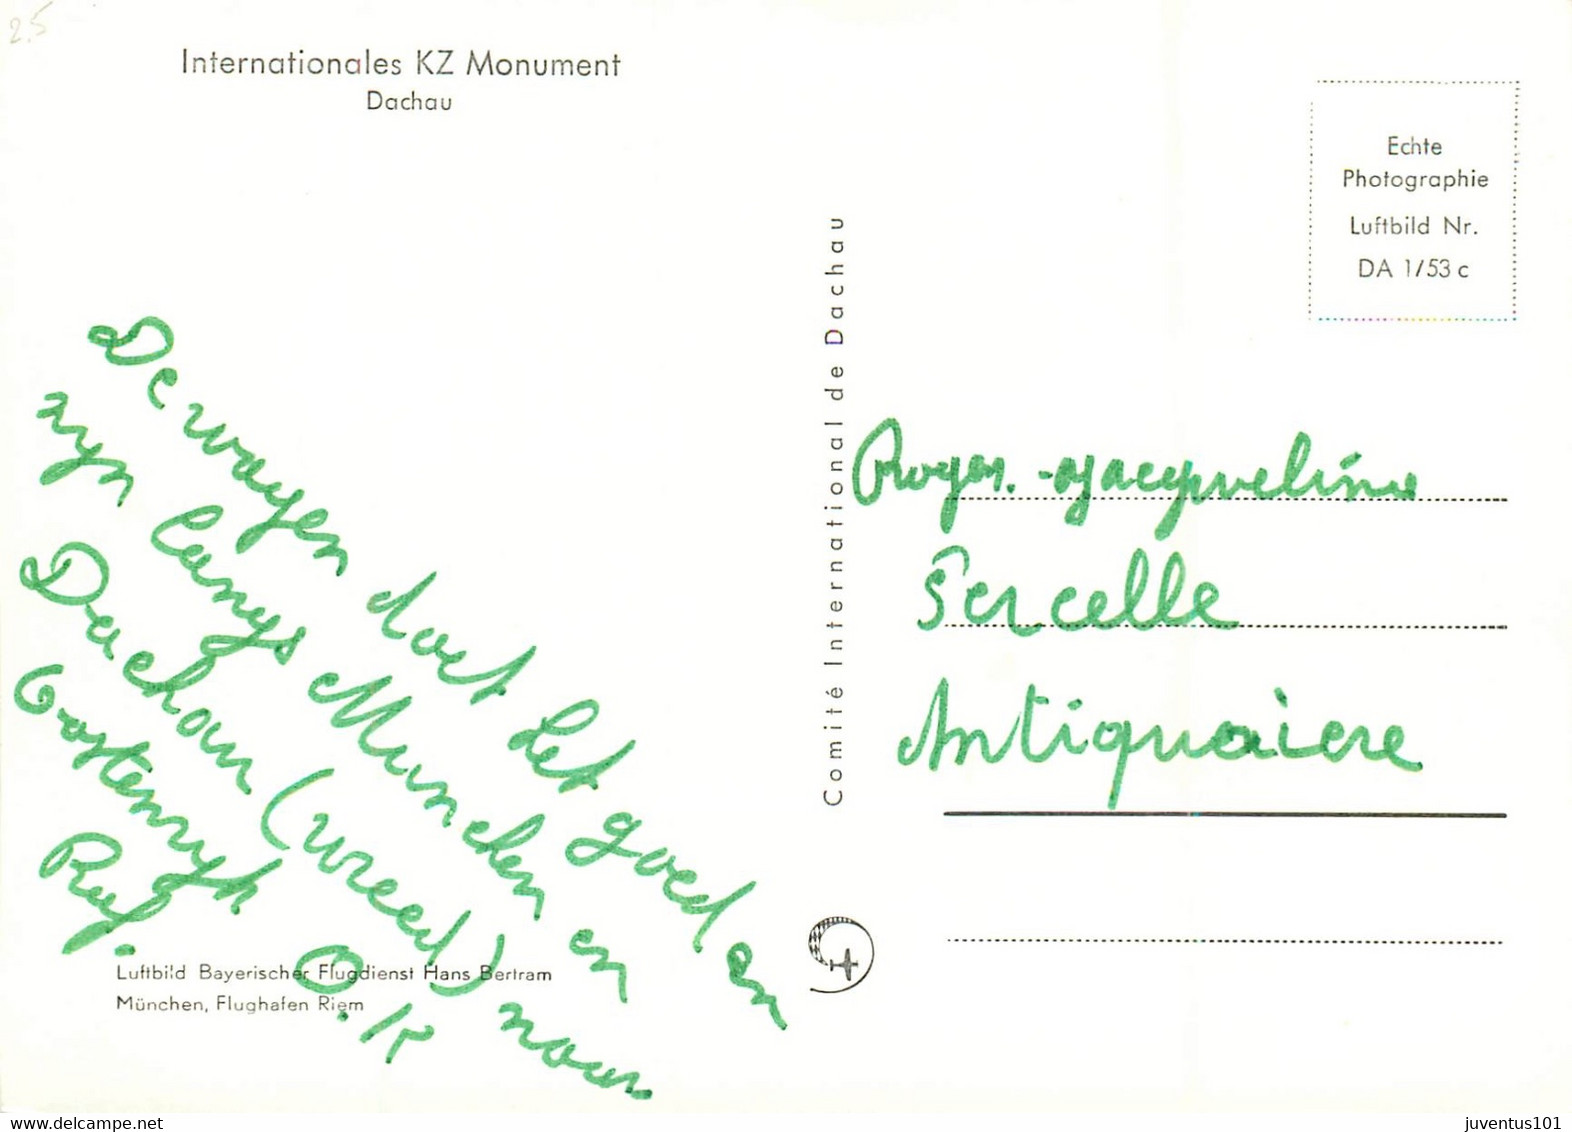 2.5
Internationales KZ Monument
Dachau
Echte
Photographie
Luftbild Nr.
DA 1/53 c
Comité International de Dachau
De wagen doet het goed en
zyn langs Munchen en
Dachau (wreed) naar
Oostenryk O.K
Roger - Jacqueline
Sercelle
Antiquaire
Luftbild Bayerischer Flugdienst Hans Bertram
München, Flughafen Riem
juventus101